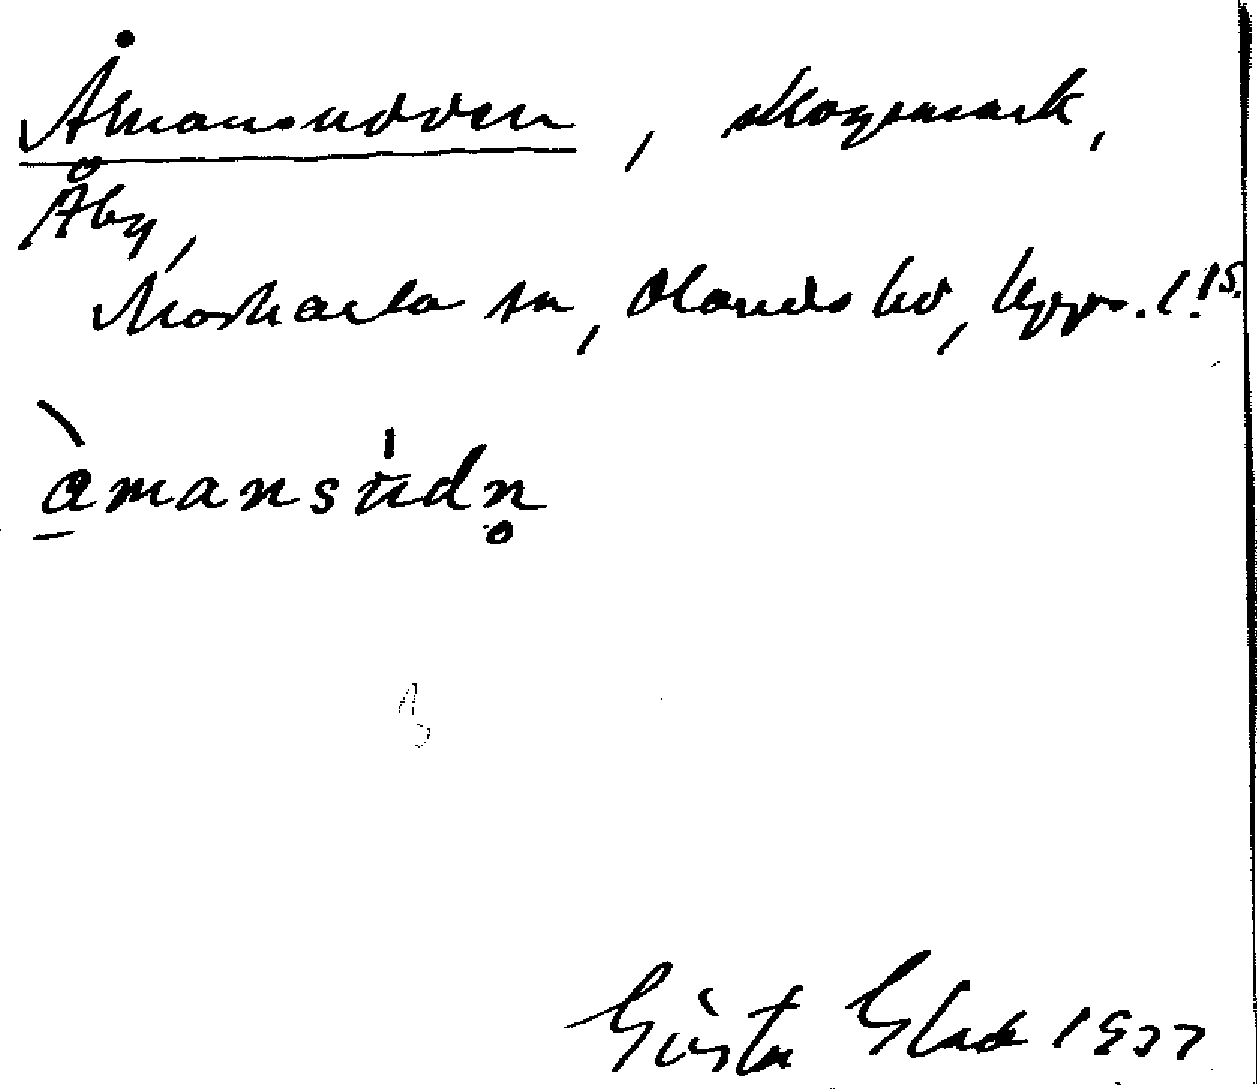 Åmansudden, skogsmark,
Åby,
Morkarla sn, Olands hd, Upps. l. 15.
àmansu̍dn̥
Gösta Glad 1937